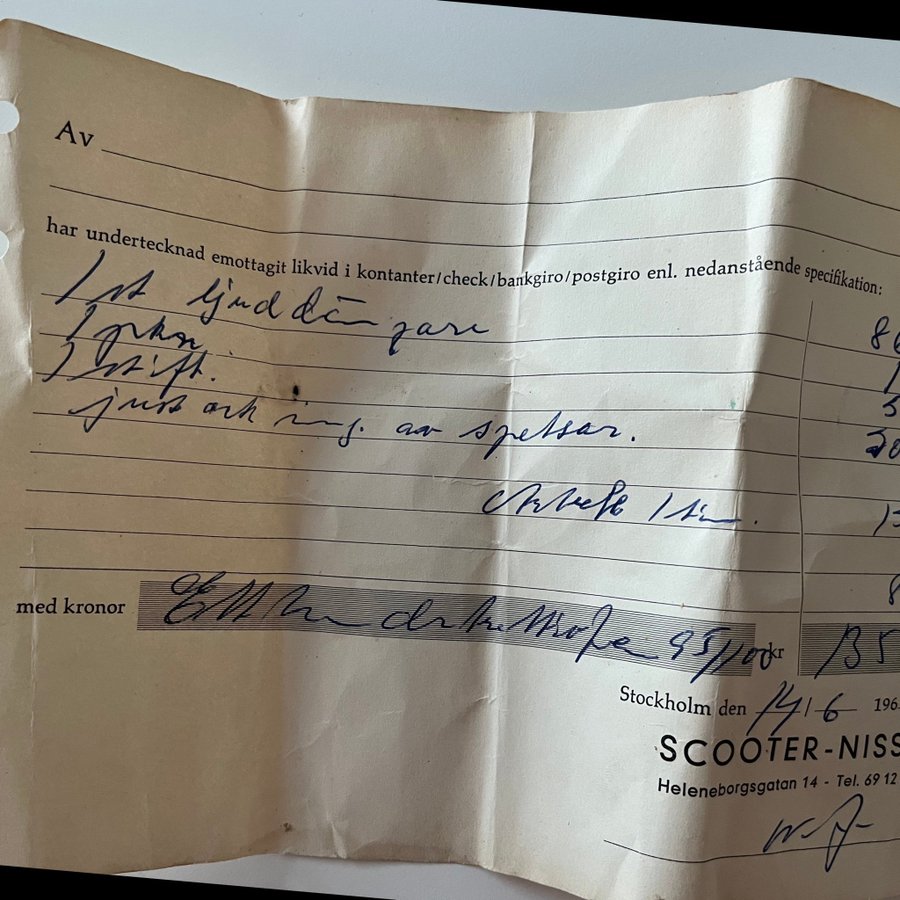 Av
har undertecknad emottagit likvid i kontanter/check/bankgiro/postgiro enl. nedanstående specifikation:
1 st ljuddämpare
1 1
1 stift.
just och ing. av spetsar. 30
Arbete 1 tim.
8
med kronor Ett hundratrettiofem 95/100 kr 135
Stockholm den 14/6 196
SCOOTER-NISS
Heleneborgsgatan 14 - Tel. 69 12